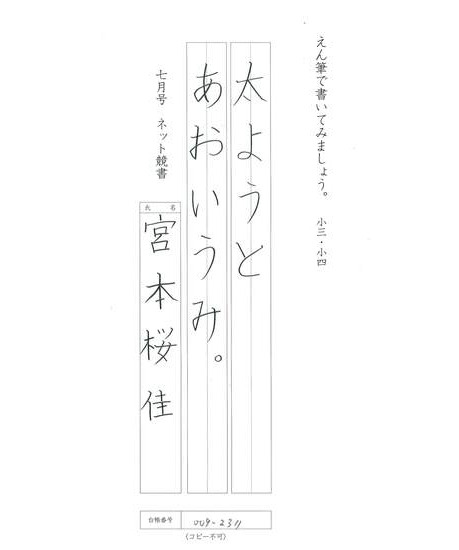 えん筆で書いてみましょう。 小三・小四
太ようと
あおいうみ。
七月号 ネット競書
氏名
宮本桜佳
台帳番号 009-2311
(コピー不可)